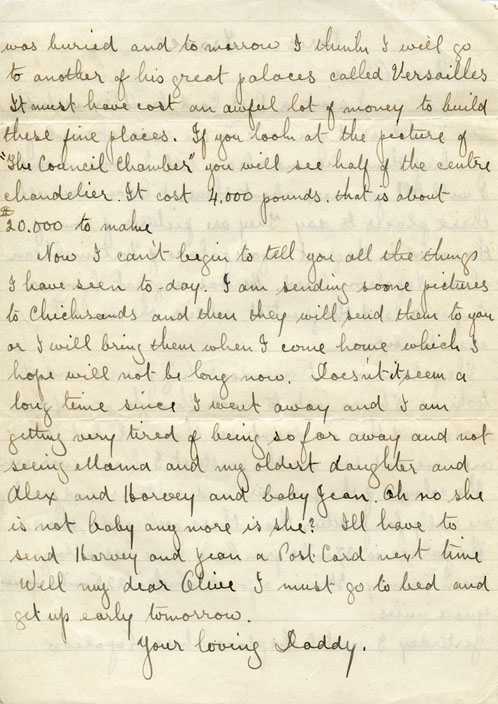 was buried and to morrow I think I will go
to another of his great palaces called Versailles
It must have cost an awful lot of money to build
these fine places. If you look at the picture of
"The Council Chamber" you will see half of the centre
chandelier. It cost 4,000 pounds. that is about
$20.000 to make
Now I can't begin to tell you all the things
I have seen to-day. I am sending some pictures
to Chicksands and then they will send them to you
or I will bring them when I come home which I
hope will not be long now. Doesn't it seem a
long time since I went away and I am
getting very tired of being so far away and not
seeing Mama and my oldest daughter and
Alex and Harvey and baby Jean. Oh no she
is not baby any more is she? I'll have to
send Harvey and Jean a Post Card next time
Well my dear Olive I must go to bed and
get up early tomorrow.
Your loving Daddy.